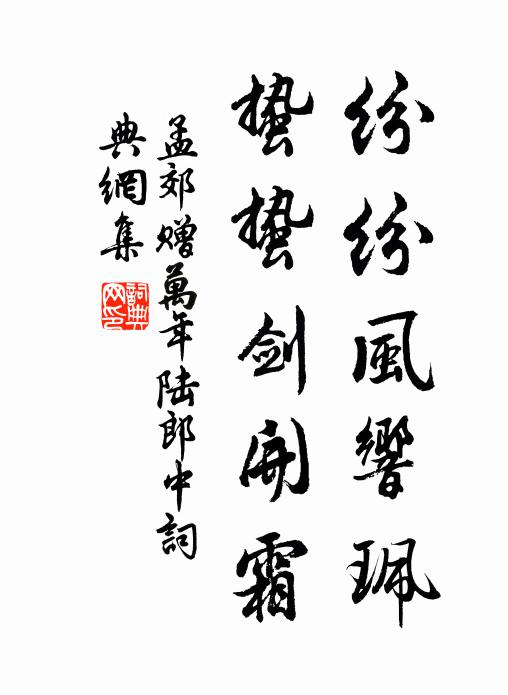 紛紛風響珮
蟄蟄劍開霜
孟郊贈萬年陸郎中詞
典網集
詞典
网印